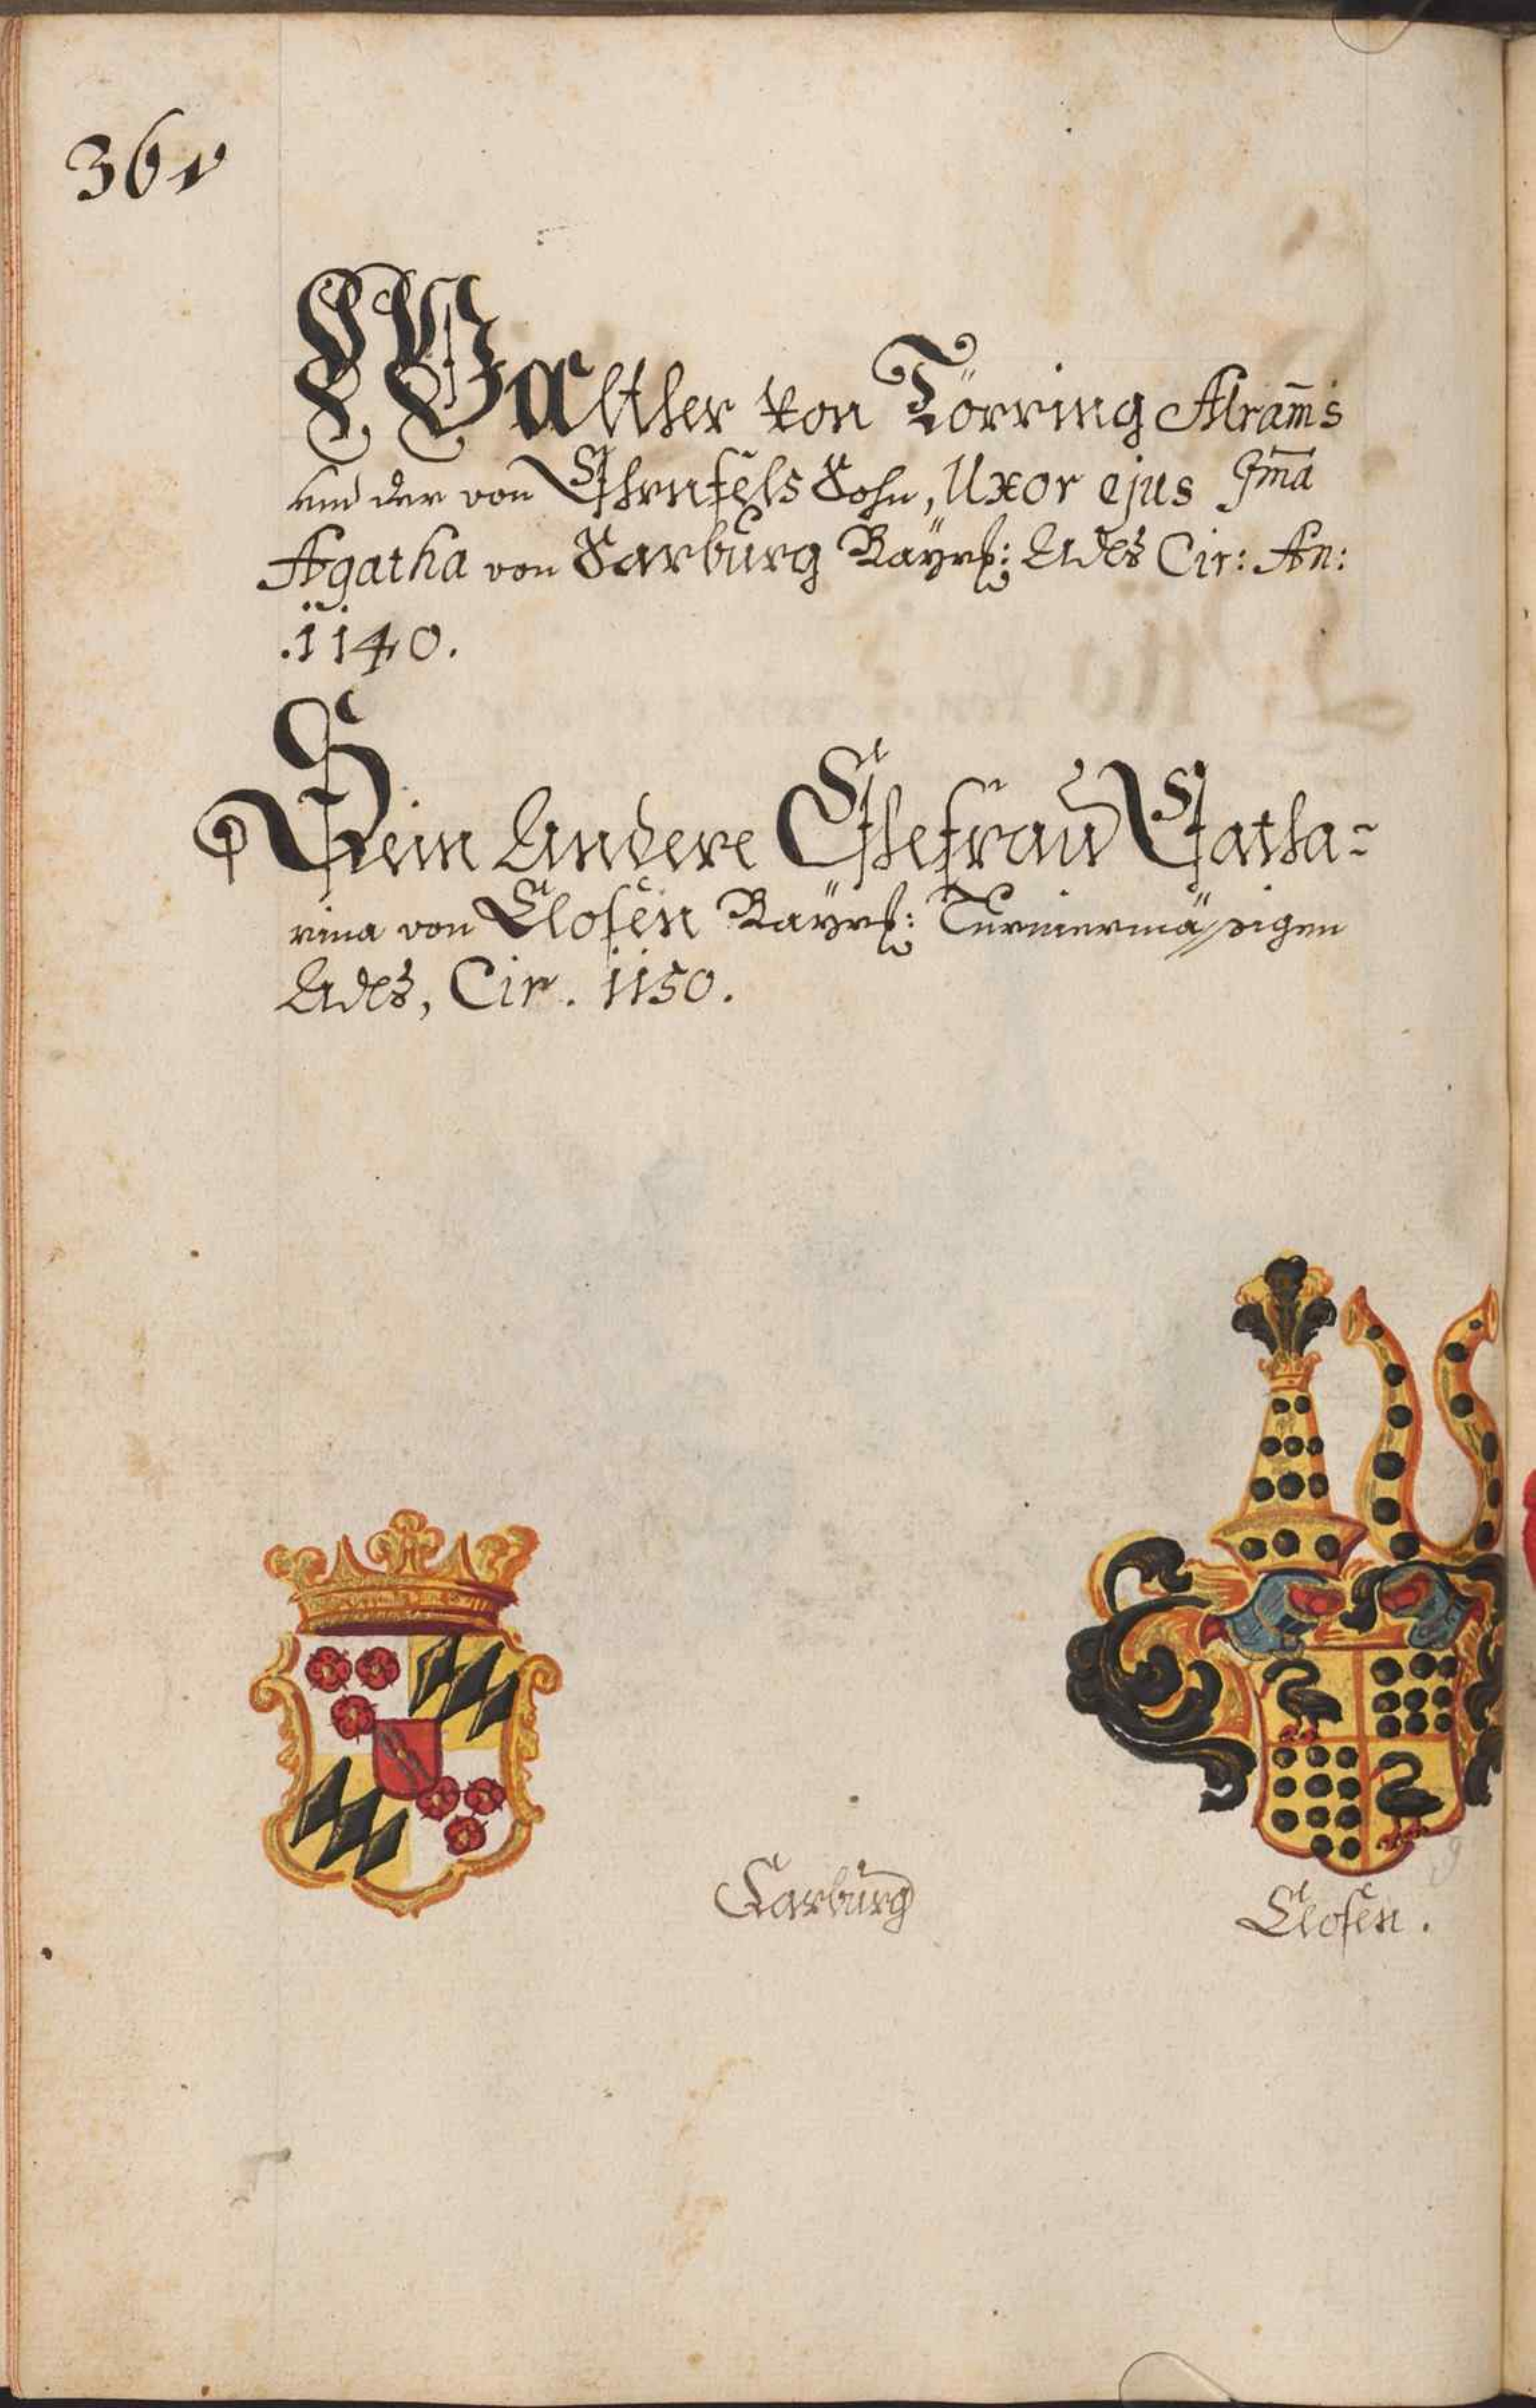 36v
Walther von Törring Alram̄s
und der von Ehrnfels Sohn, Uxor ejus Im̄a
Agatha von Sarburg Bayrs: Adels Cir: An:
.1140.
Sein Andere Ehefrau Catha-
rina von Closen Bayrs: Turniermässigen
Adels, Cir. 1150.
Sarburg
Closen.